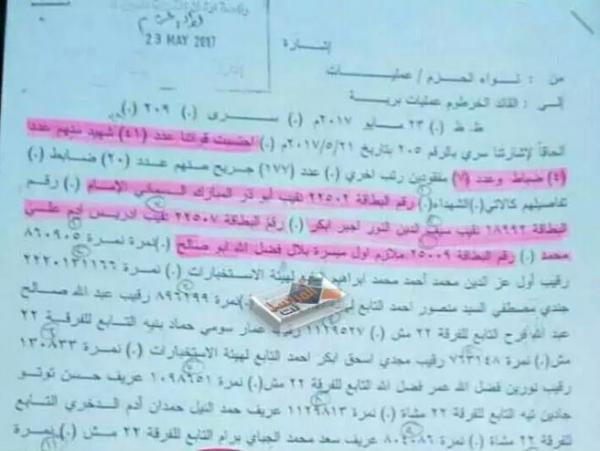 23 MAY 2017
إشارة
من : لواء الحزم / عمليات
إلى : القائد الخرطوم عمليات برية
ظ. ظ (.) ٢٣ مايو ٢٠١٧م (.) سرى (.) ٢٠٩ (.)
الحاقاً لإشارتنا سري بالرقم ٢٠٥ بتاريخ ٢٠١٧/٥/٢١م (.) احتسبت قواتنا عدد (٤١) شهيد منهم عدد
(٤) ضباط وعدد (٧) مفقودين رتب اخري (.) عدد (١٧٧) جريح منهم عدد (٢٠) ضابط (.)
تفاصيلهم كالاتي (.) الشهداء (.) رقم البطاقة ٢٢٥٠٢ نقيب أبو ذر المبارك اليماني الإمام (.) رقم
البطاقة ١٨٢٩٢ نقيب سيف الدين النور اجبر ابكر (.) رقم البطاقة ٢٢٥٠٧ نقيب ادريس ادم علي
محمد (.) رقم البطاقة ٢٥٠٠٩ ملازم اول ميسرة بلال فضل الله ابو صالح (.) نمرة نمرة ٨٦٠٩٠٥
رقيب أول عز الدين محمد أحمد محمد ابراهيم لهيئة الاستخبارات (.) نمرة ٢٢٢٠١٣١١٦٦
جندي مصطفي السيد منصور احمد التابع (.) نمرة ٨٩٦٢٩٩ رقيب عبد الله صالح
عبد الله فرح التابع للفرقة ٢٢ مش (.) ١١٢٩٥٢٧ عمار سومي حماد بنيه التابع للفرقة ٢٢
مش (.) نمرة ٧٦٣٦٤٨ رقيب مجدي اسحق ابكر احمد التابع لهيئة الاستخبارات (.) نمرة ١٣٠٨٣٣
رقيب نورين فضل الله عمر فضل الله التابع للفرقة ٢٢ مش (.) نمرة ١٠٩٨٦٥١ عريف حسن توتو
جادين تيه التابع للفرقة ٢٢ مشاة (.) نمرة ١١٢٩٨١٣ عريف حمد النيل حمدان أدم الدخري التابع
للفرقة ٢٢ مشاة (.) نمرة ٨٠٤٠٨٦ عريف سعد محمد الجباي برام التابع للفرقة ٢٢ مش (.) نمرة